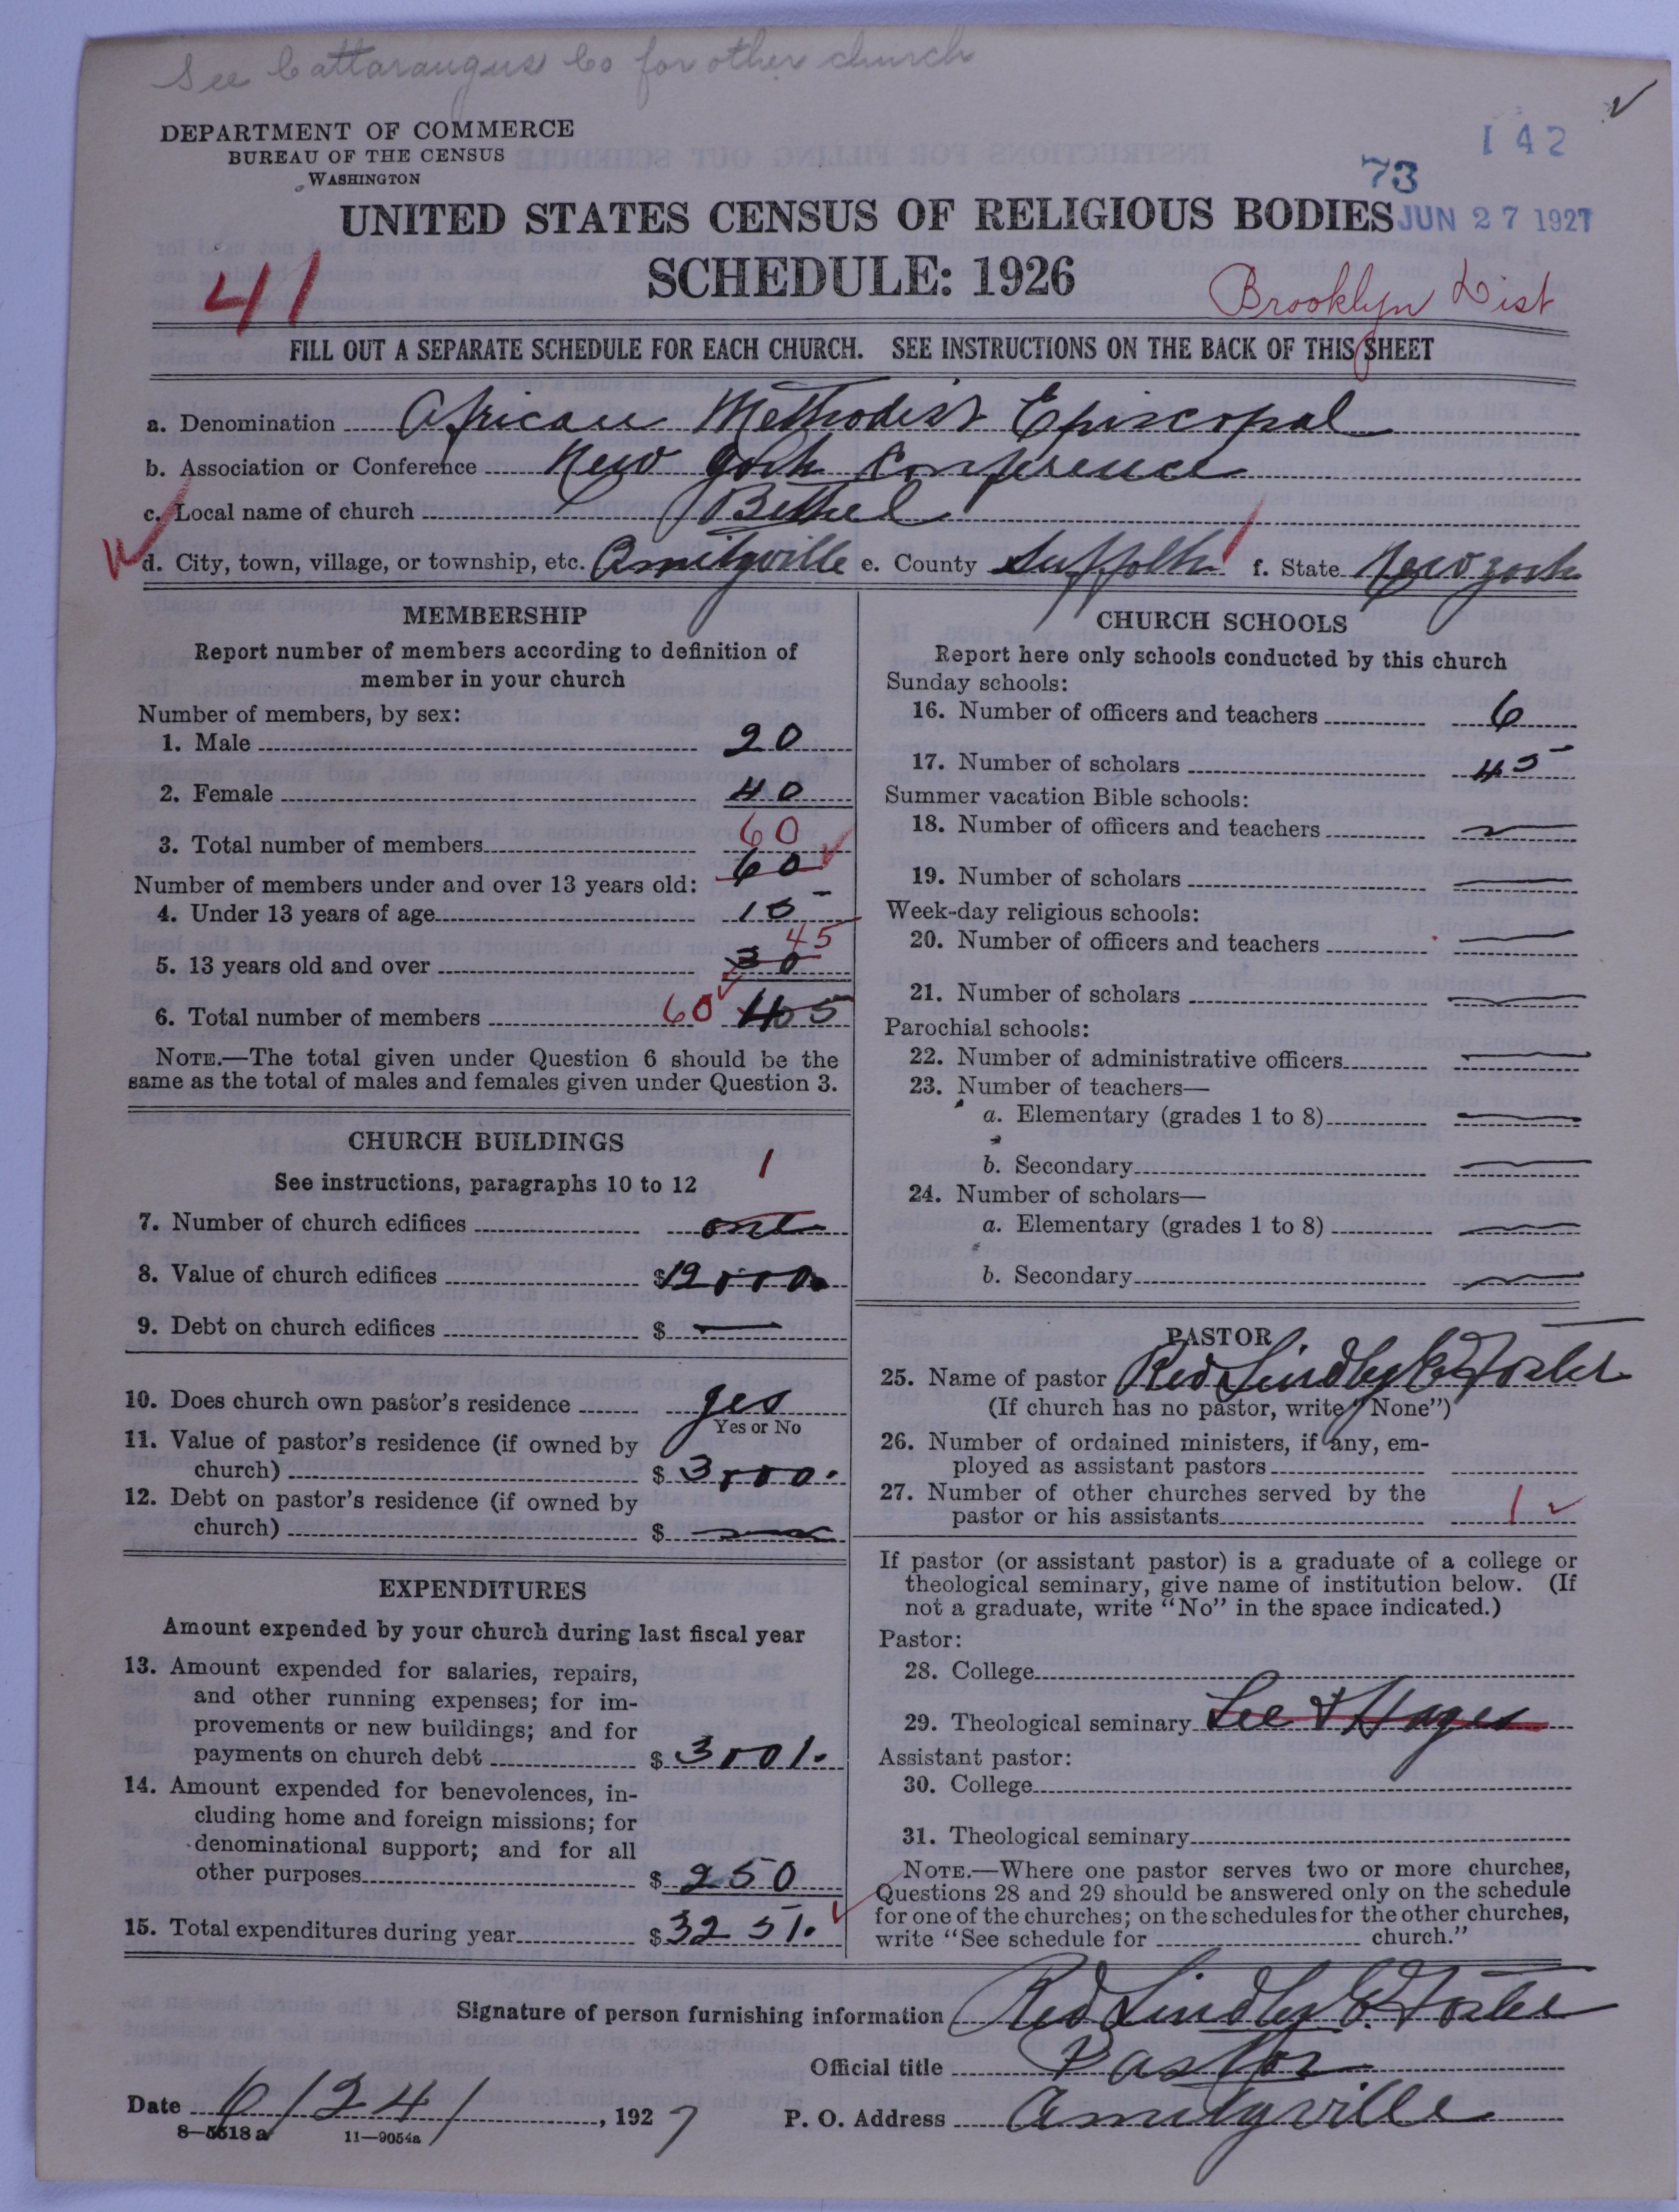 See Cattaraugus Co for other church
DEPARTMENT OF COMMERCE
BUREAU OF THE CENSUS
WASHINGTON
142
73
JUN 27 1927
UNITED STATES CENSUS OF RELIGIOUS BODIES
SCHEDULE: 1926
41
Brooklyn Dist
FILL OUT A SEPARATE SCHEDULE FOR EACH CHURCH. SEE INSTRUCTIONS ON THE BACK OF THIS SHEET
a. Denomination African Methodist Episcopal
b. Association or Conference New York Conference
c. Local name of church Bethel
d. City, town, village, or township, etc. Amityville e. County Suffolk f. State New York
MEMBERSHIP
Report number of members according to definition of
member in your church
Number of members, by sex:
1. Male 20
2. Female 40
60
3. Total number of members 60
Number of members under and over 13 years old:
4. Under 13 years of age 15
45
5. 13 years old and over 30
6. Total number of members 60 45
NOTE.—The total given under Question 6 should be the
same as the total of males and females given under Question 3.
CHURCH BUILDINGS
See instructions, paragraphs 10 to 12
1
7. Number of church edifices one
8. Value of church edifices $12000
9. Debt on church edifices $ —
10. Does church own pastor's residence yes
Yes or No
11. Value of pastor's residence (if owned by
church) $ 3000.
12. Debt on pastor's residence (if owned by
church) $ —
EXPENDITURES
Amount expended by your church during last fiscal year
13. Amount expended for salaries, repairs,
and other running expenses; for im-
provements or new buildings; and for
payments on church debt $ 3001.
14. Amount expended for benevolences, in-
cluding home and foreign missions; for
denominational support; and for all
other purposes $ 250
15. Total expenditures during year $3251.
CHURCH SCHOOLS
Report here only schools conducted by this church
Sunday schools:
16. Number of officers and teachers 6
17. Number of scholars 45
Summer vacation Bible schools:
18. Number of officers and teachers —
19. Number of scholars —
Week-day religious schools:
20. Number of officers and teachers —
21. Number of scholars —
Parochial schools:
22. Number of administrative officers —
23. Number of teachers—
a. Elementary (grades 1 to 8) —
b. Secondary —
24. Number of scholars—
a. Elementary (grades 1 to 8) —
b. Secondary —
PASTOR
25. Name of pastor Rev Lindley E Foster
(If church has no pastor, write "None")
26. Number of ordained ministers, if any, em-
ployed as assistant pastors
27. Number of other churches served by the
pastor or his assistants 1
If pastor (or assistant pastor) is a graduate of a college or
theological seminary, give name of institution below. (If
not a graduate, write "No" in the space indicated.)
Pastor:
28. College
29. Theological seminary Lee & Hayes
Assistant pastor:
30. College
31. Theological seminary
NOTE.—Where one pastor serves two or more churches,
Questions 28 and 29 should be answered only on the schedule
for one of the churches; on the schedules for the other churches,
write "See schedule for church."
Signature of person furnishing information Rev Lindley E. Foster
Official title Pastor
Date 6/24/, 1927 P. O. Address Amityville
8—5518a 11—9054a